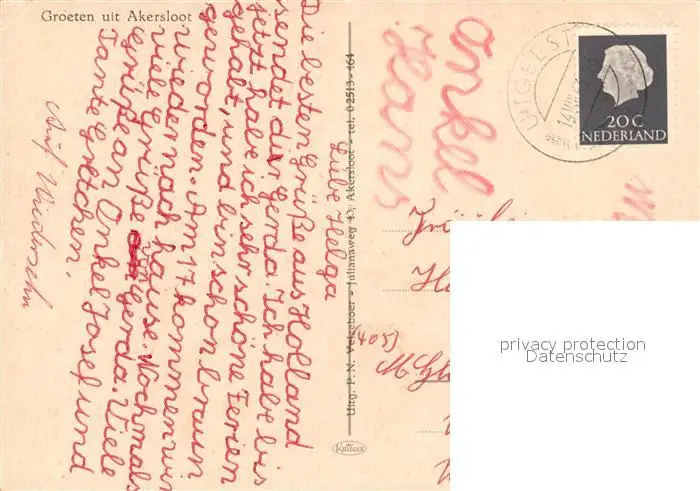 Groeten uit Akersloot
Liebe Helga
Die besten Grüße aus Holland
sendet dir Gerda. Ich habe bis
jetzt habe ich sehr schöne Ferien
gehabt, und bin schon braun
geworden. Am 17 kommen wir
wieder nach hause. Nochmals
viele Grüße von gerda. Viele
Grüße an Onkel Josef und
Tante Gretchen.
Auf Wiedersehn
Onkel
Hans
Uitg. P. N. Velzeboer - Julianaweg 40, Akersloot - tel. 02513-464
KRÜGER
UITGEEST
20 C
NEDERLAND
(405)
M. Gl
privacy protection
Datenschutz